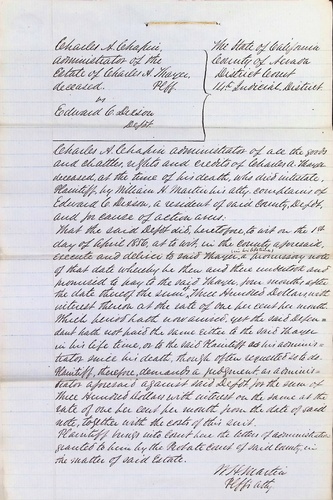 Charles A. Chapin,
administrator of the
Estate of Charles A. Thayer,
deceased. Plff.
vs
Edward C. Dixson
Defdt.
The State of California
County of Nevada
District Court
14th Judicial District
Charles A. Chapin administrator of all the goods
and chattles, rights and credits of Charles A. Thayer
deceased, at the time of his death, who died intestate,
Plaintiff, by William H. Martin his atty, complains of
Edward C. Dixson, a resident of said County, Defdt,
and for cause of action avers:
That the said Defdt did, heretofore, to wit on the 1st
day of April 1856, at to wit, in the County aforesaid,
execute and deliver to said Thayer a promissory note
of that date whereby he then and there undertook and
promised to pay to the said Thayer, four months after
the date thereof the sum Three Hundred Dollars, with
interest thereon at the rate of one per cent per month
Which period hath now arrived, yet the said Defen-
dant hath not paid the same either to the said Thayer
in his life time, or to the said Plaintiff as his adminis-
trator since his death, though often requested so to do.
Plaintiff, therefore, demands a judgment as adminis-
trator aforesaid against said Defdt, for the sum of
Three Hundred Dollars with interest on the same at the
rate of one per cent per month from the date of said
note, together with the costs of this suit.
Plaintiff brings into Court here the letters of administration
granted to him by the Probate Court of said County, in
the matter of said Estate.
W. H. Martin
Plffs atty